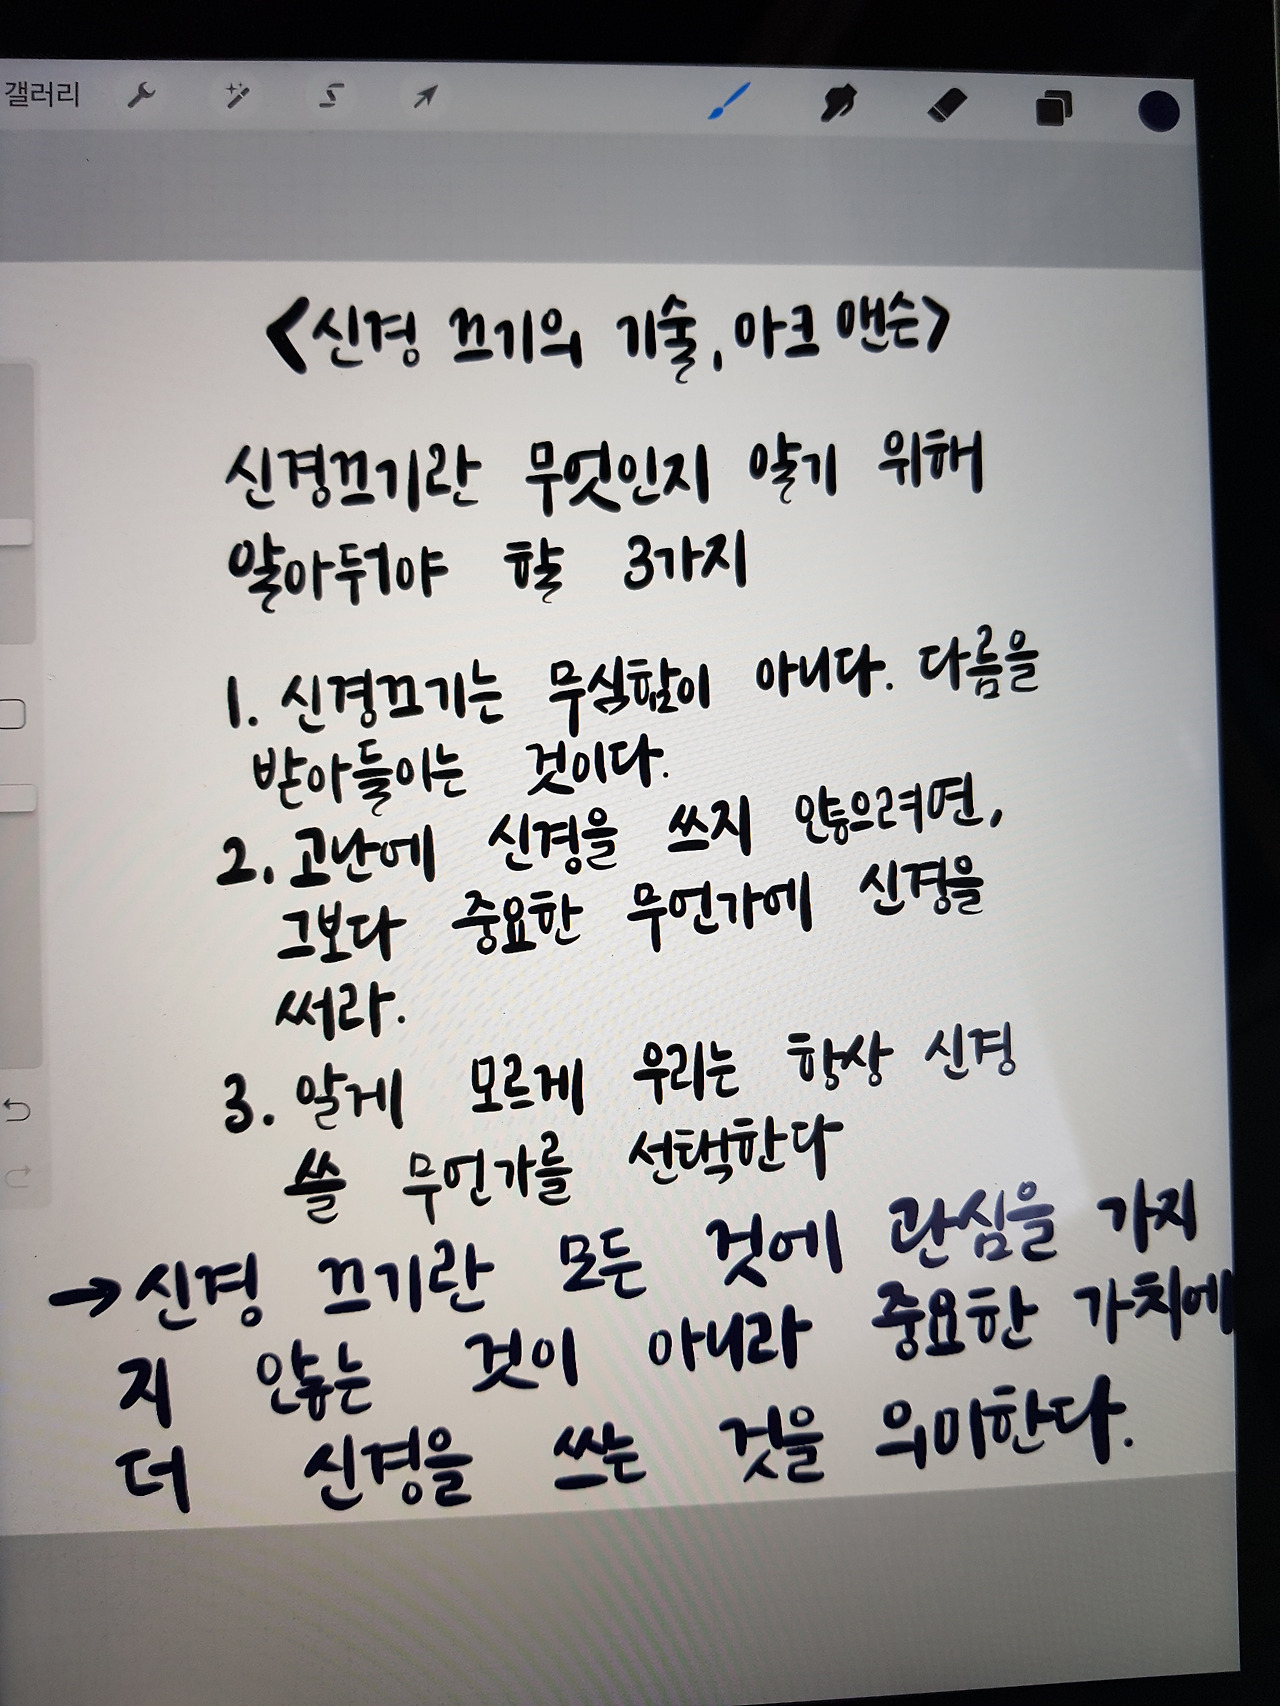 갤러리
<신경 끄기의 기술, 마크 맨슨>
신경끄기란 무엇인지 알기 위해
알아둬야 할 3가지
1. 신경끄기는 무심함이 아니다. 다름을
받아들이는 것이다.
2. 고난에 신경을 쓰지 않으려면,
그보다 중요한 무언가에 신경을
써라.
3. 알게 모르게 우리는 항상 신경
쓸 무언가를 선택한다
→ 신경 끄기란 모든 것에 관심을 가지
지 않는 것이 아니라 중요한 가치에
더 신경을 쓰는 것을 의미한다.